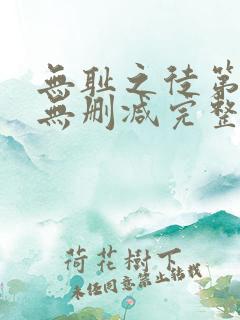 無耻之徒第
無删减完整
荷花樹下
未经同意禁止转载